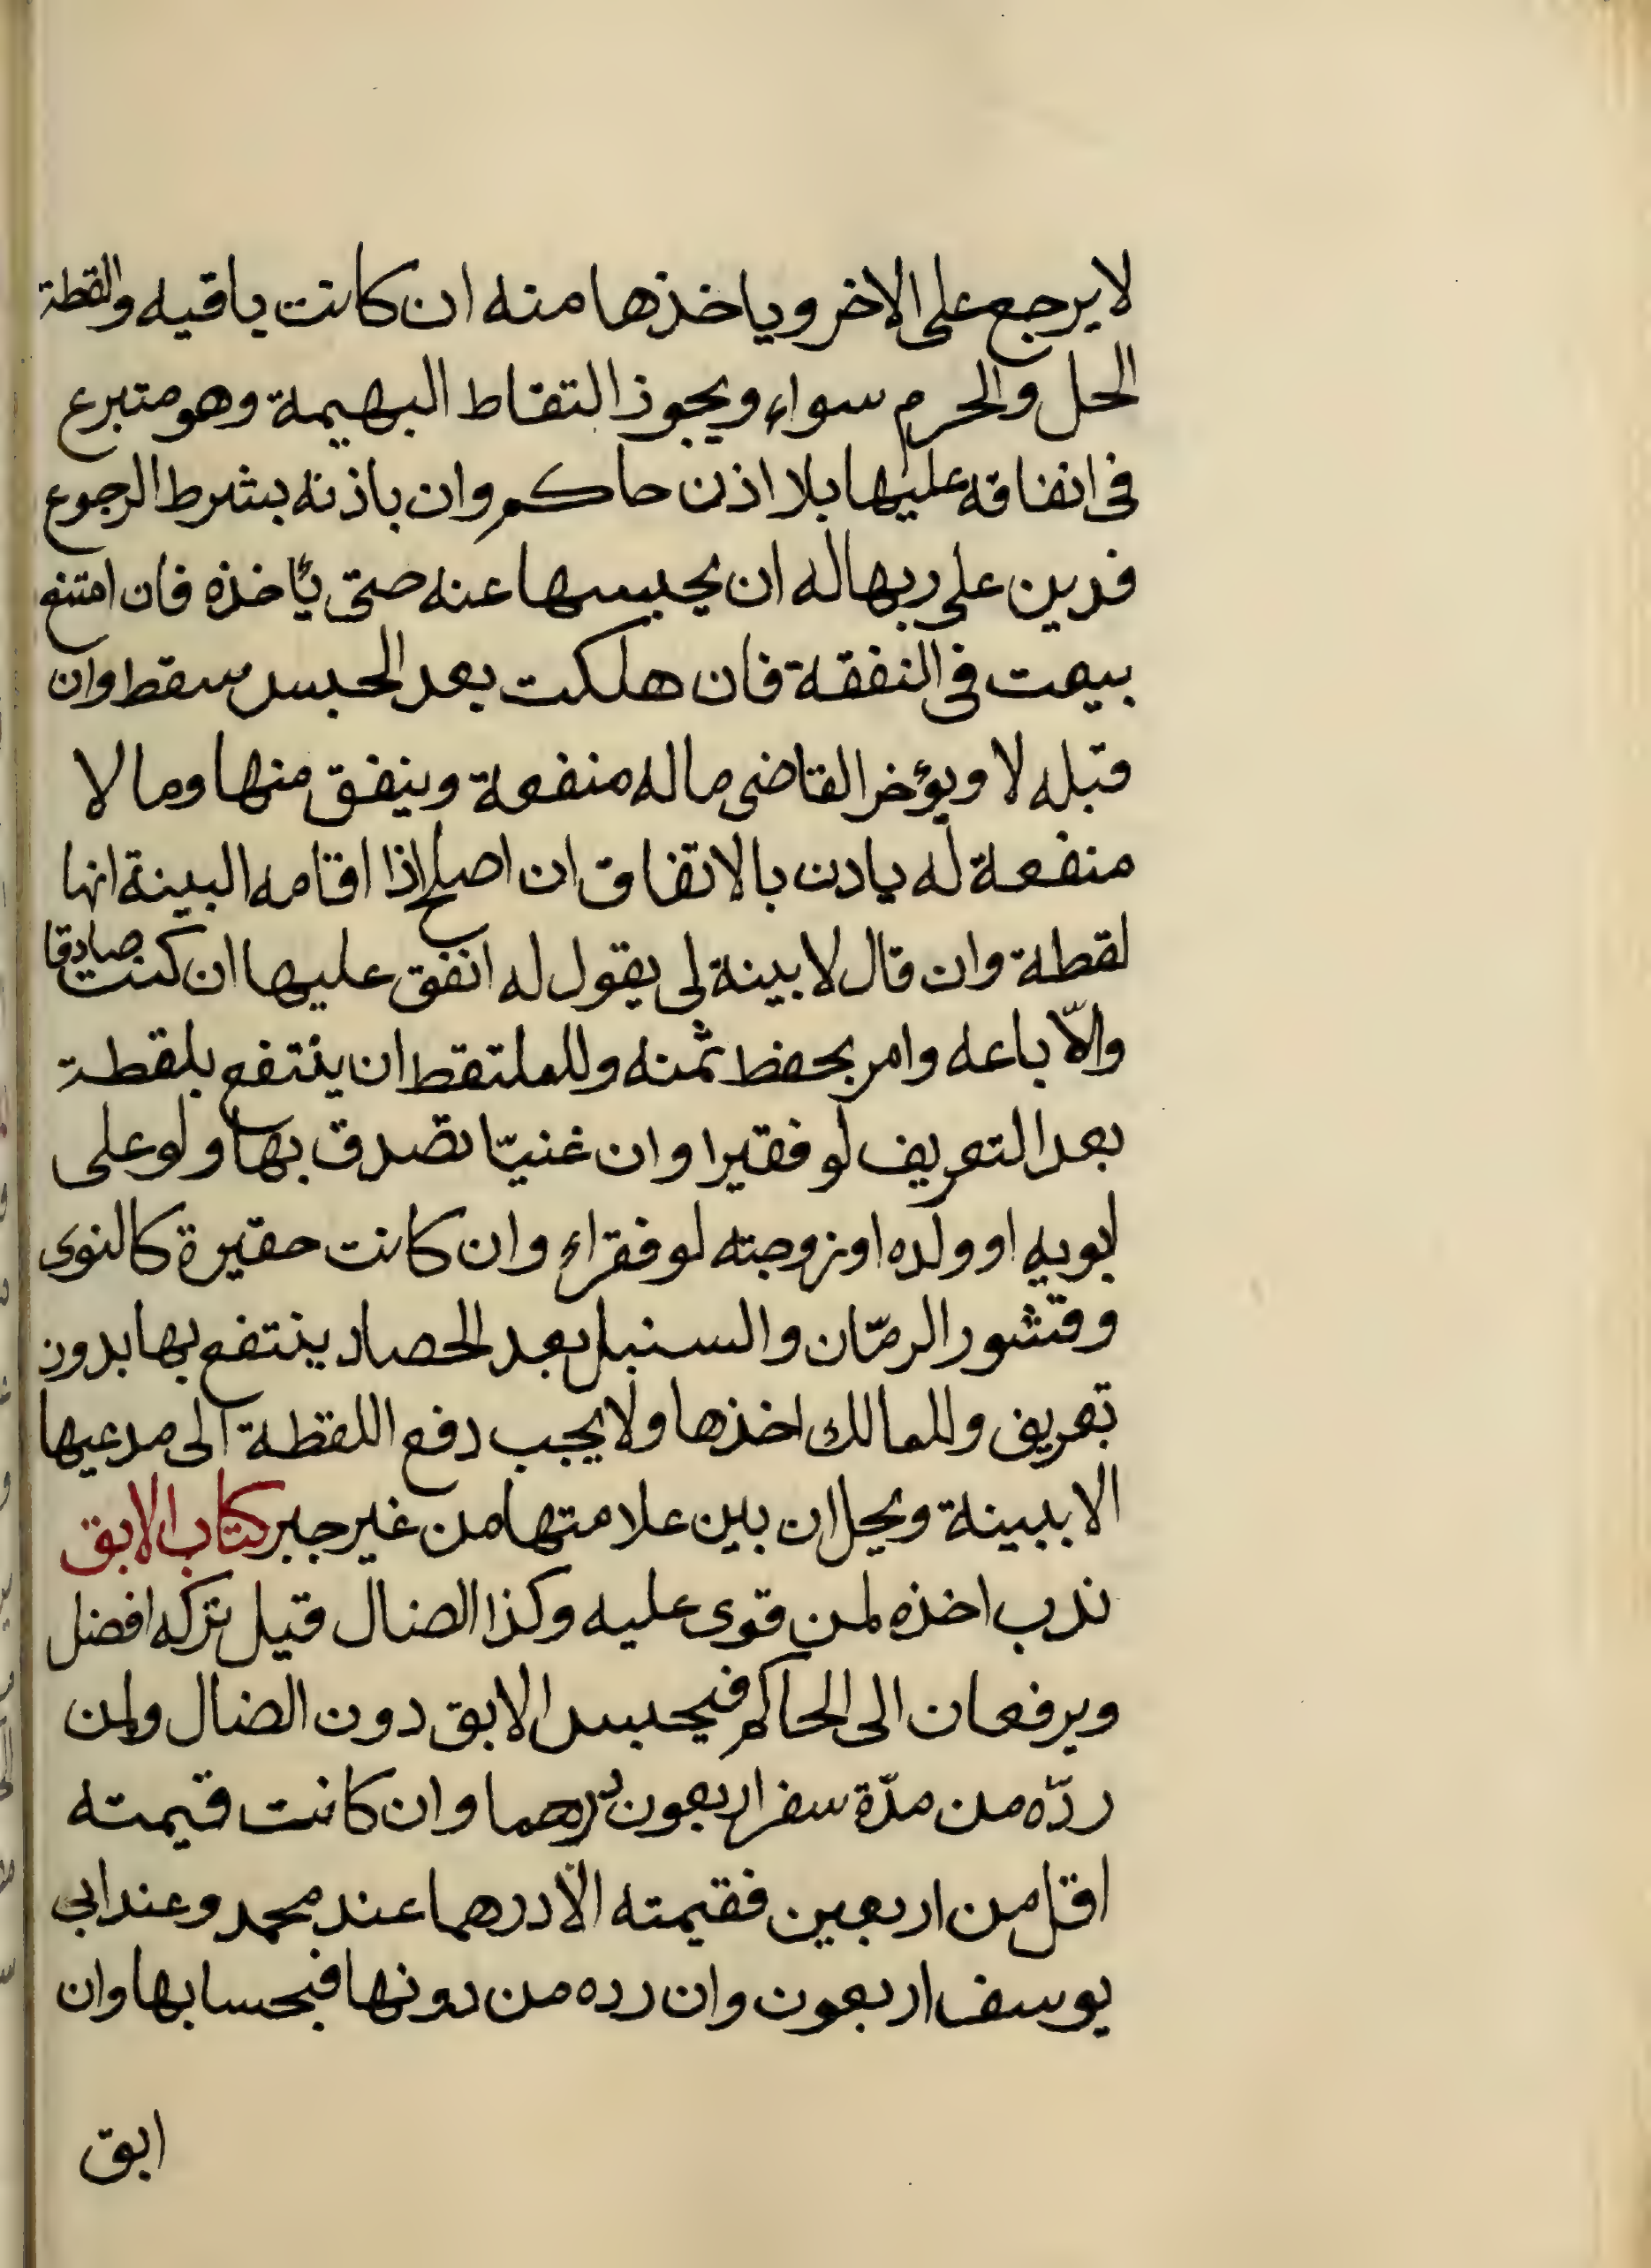 لا يرجع على الاخر وياخذها منه ان كانت باقيه ولقطة
الحل والحرم سواء ويجوز التقاط البهيمة وهو متبرع
فى انفاقه عليها بلا اذن حاكم وان باذنه بشرط الرجوع
فدين على ربها له ان يحبسها عنه حتى ياخذه فان امتنع
بيعت فى النفقة فان هلكت بعد الحبس سقط وان
قبله لا ويؤخر القاضى ماله منفعة وينفق منها وما لا
منفعة له ياذن بالانفاق ان اصلح اذا اقامه البينة انها
لقطة وان قال لا بينة لى يقول له انفق عليها ان كنت صادقا
والّا باعه وامر بحفظ ثمنه وللملتقط ان ينتفع بلقطة
بعد التعريف لو فقيرا وان غنيّا تصدق بها ولو على
ابويه او ولده او زوجته لو فقراء وان كانت حقيرة كالنوى
وقشور الرمّان والسنبل بعد الحصاد ينتفع بها بدون
تعريف وللمالك اخذها ولا يجب دفع اللقطة الى مدعيها
الا ببينة ويحل ان بين علامتها من غير جبر كتاب الابق
ندب اخذه لمن قوى عليه وكذا الضال قيل تركه افضل
ويرفعان الى الحاكم فيحبس الابق دون الضال ولمن
ردّه من مدّة سفر اربعون درهما وان كانت قيمته
اقل من اربعين فقيمته الا درهما عند محمد وعند ابى
يوسف اربعون وان رده من دونها فبحسابها وان
ابق